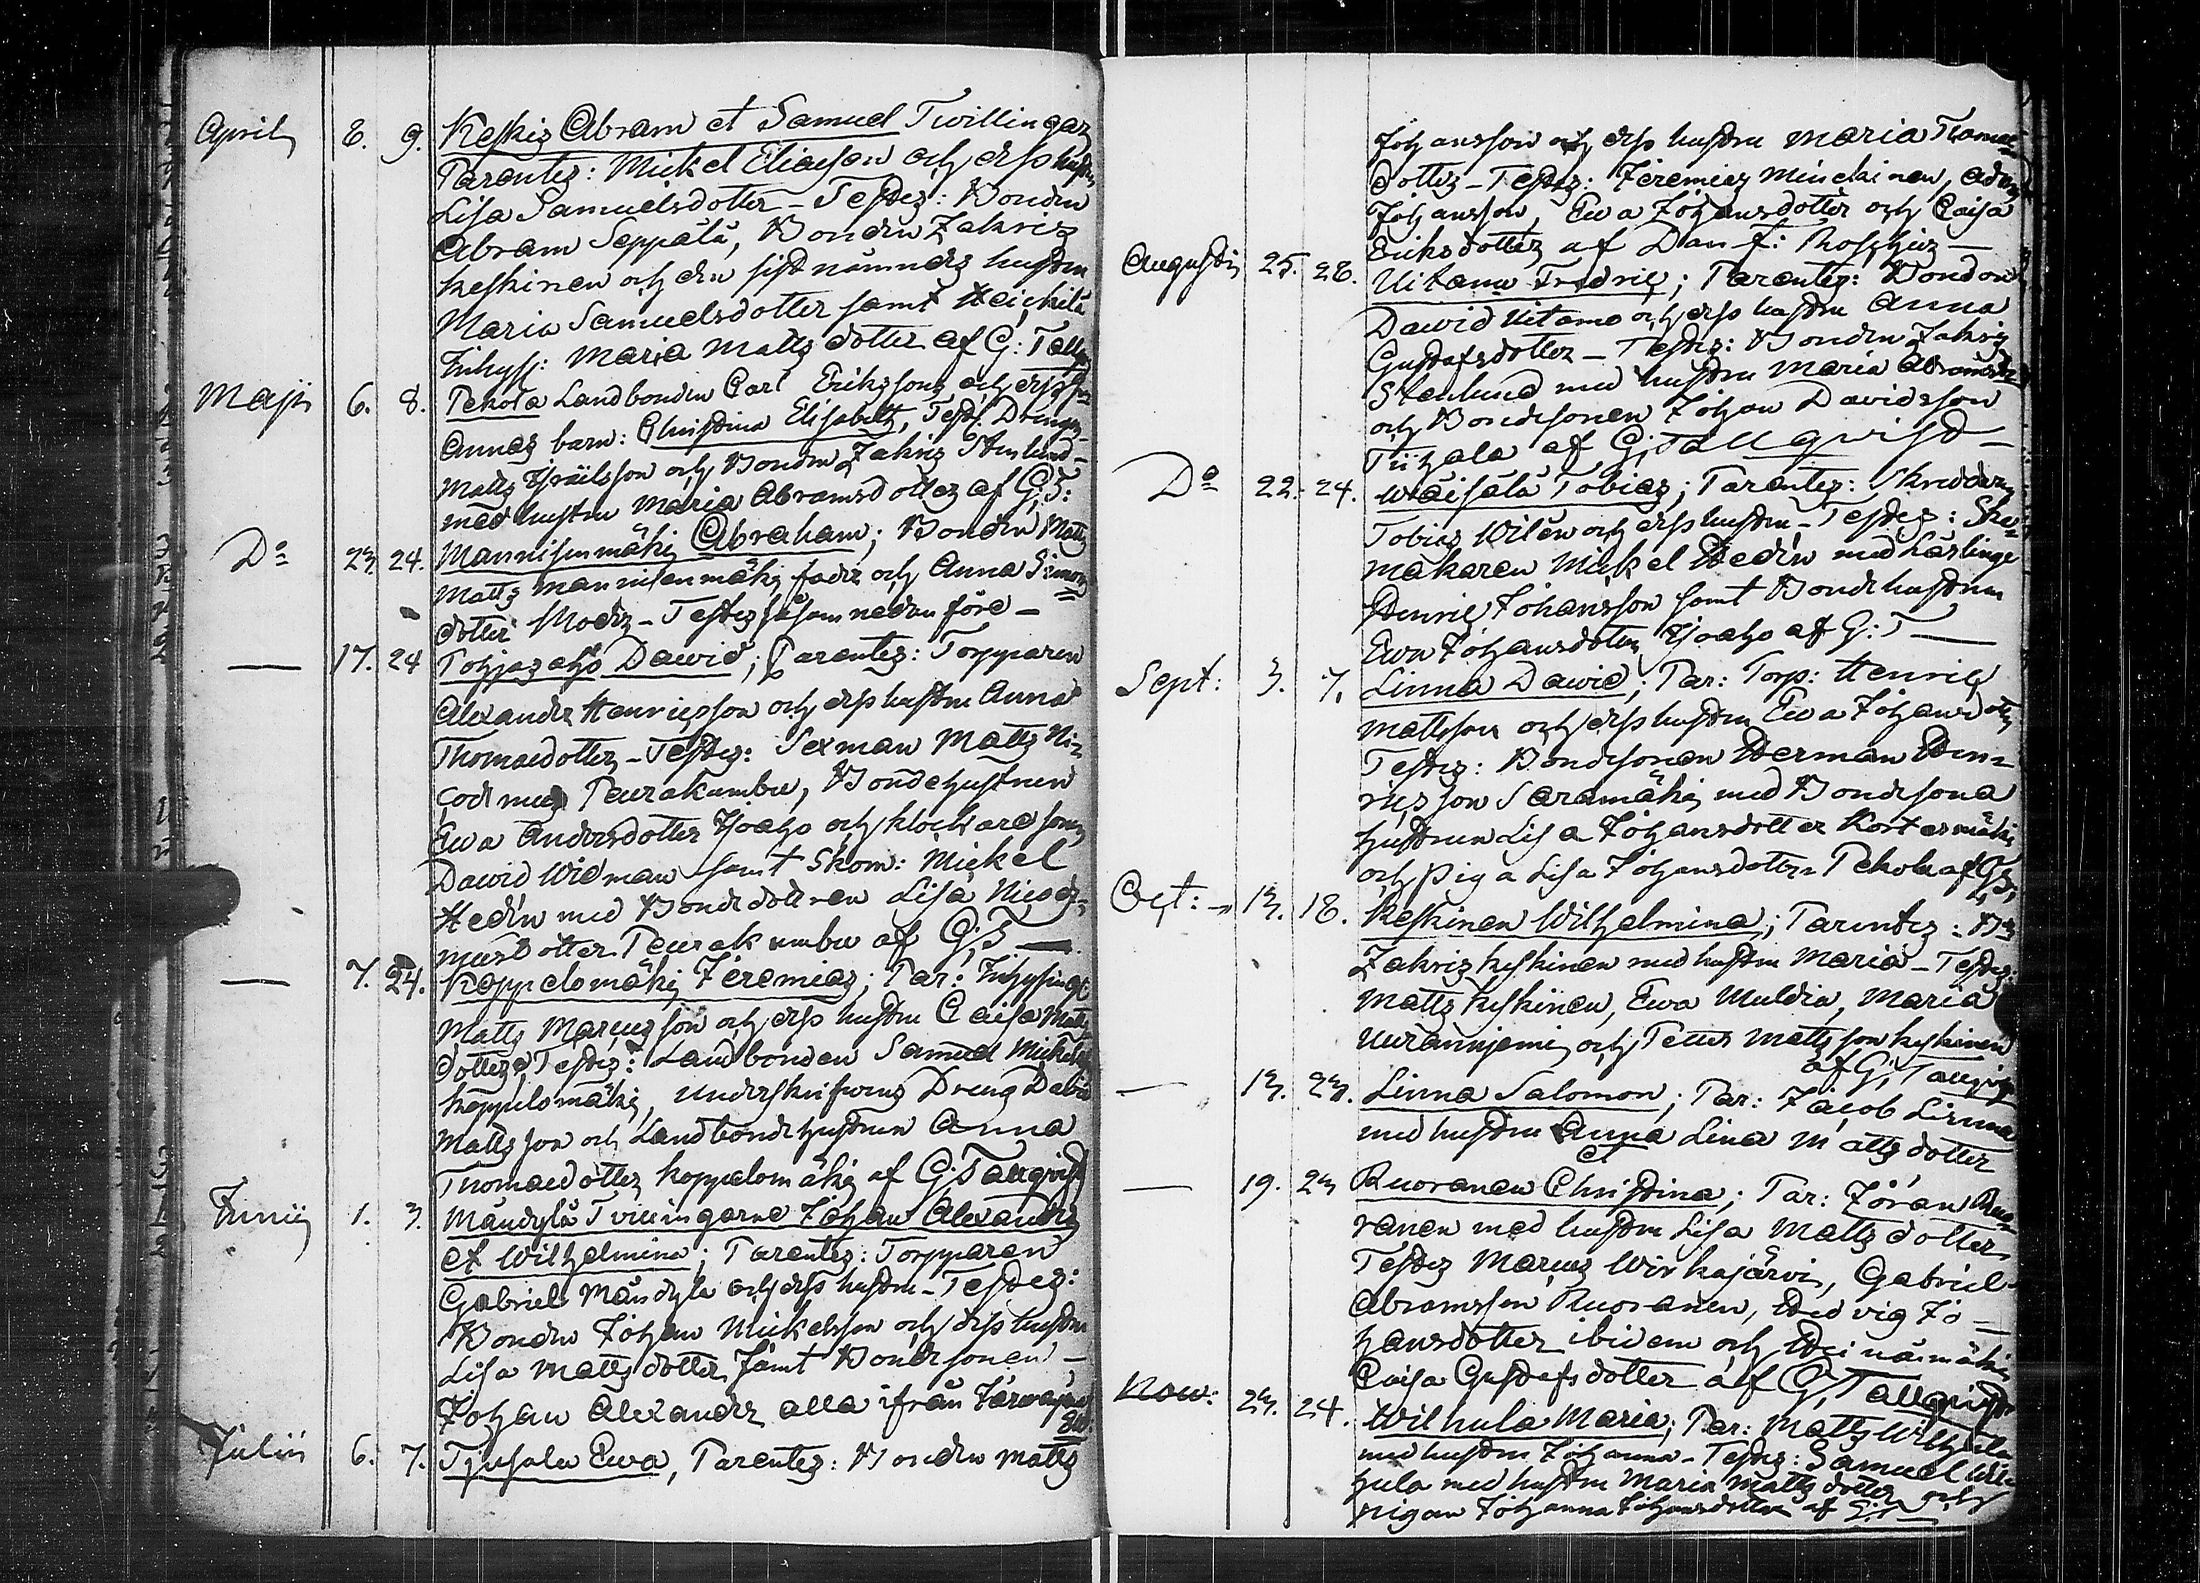 April 8. 9. Keskis Abram et Samuel Twillingar
Parentes: Mickel Eliaeson och dess hustru
Lisa Samuelsdotter - Testes: Bonden
Abram Seppälä, Bonden Zakris
Keskinen och den sist nämndes hustru
Maria Samuelsdotter samt Heickilä
Inhyss: Maria Matts dotter af G: Tallqv:
Maji 6. 8. Pekola Landbonden Carl Erikssons och dess
Annas barn: Christina Elisabeth, Test. Drengen
Matts Isräilsson och Bonden Zakris Stenlund
med hustru Maria Abramsdotter af G: T:
Do 23. 24. Mannisenmäki Abraham; Bonden Matts
Matts Mannisenmäki fader och Anna Simons
dotter Moder - Testes såsom nedanföre -
— 17. 24 Pohjas aho Dawid; Parentes: Torpparen
Alexander Henricsson och dess hustru Anna
Thomaedotter - Testes: Sexman Matts Ni-
codemus Peurakumbu, Bondehustrun
Ewa Andersdotter Isoaho och klockaresonen
Dawid Widman samt Skom: Mickel
Hedin med Bondedottren Lisa Nicode-
musdotter Peurakumbu af G: T —
— 7. 24. Koppelomäki Jeremias; Par: Inhysinge
Matts Marcusson och dess hustru Caisa Matts
dotter, Testes: Landbonden Samuel Mickelss.
Koppelomäki, Underskrifvens Dreng David
Mattsson och Landbondehustrun Anna
Thomaedotter Koppelomäki af G: Tallqvist
Junii 1. 3. Mändylä Tvillingarne Johan Alexander
et Wilhelmina; Parentes: Torpparen
Gabriel Mändylä och dess hustru - Testes:
Bonden Johan Mickelsson och dess hustru
Lisa Matts dotter samt Bondesonen -
Johan Alexander alla ifrån
Julii 6. 7. Tjusala Ewa, Parentes: Bonden Matts
Johansson och dess hustru Maria Thomae
dotter - Testes: Jeremias Minckinen, Adam
Johansson, Ewa Johansdotter och Caisa
Eriksdotter af Dan f: Roschier —
Augusti 25. 28. Uitamo Fredric; Parentes: Bonden
Dawid Uitamo och dess hustru Anna
Gustafsdotter - Testes: Bonden Zakris
Stenlund med hustru Maria Abramsdr
och Bondesonen Johan Davidsson
Tiihala af G: Tallqwist —
Do 22. 24. Wäisälä Tobias; Parentes: Skreddaren
Tobias Wilén och dess hustru - Testes: Sko-
makaren Mickel Hedin med Lärlinge
Henric Johansson samt Bondehustrun
Ewa Johansdotter Isoaho af G: T —
Sept: 3. 7. Linna Dawid; Par: Torp: Henric
Mattsson och dess hustru Ewa Johansdotter
Testes: Bondesonen Herman Hen-
ricsson Saramäki med Bondesona
hustrun Lisa Johansdotter Kortesmäki
och Piga Lisa Johansdotter Pekola af G: T:
Oct: 13. 18. Keskinen Wilhelmina; Parentes: Bn
Zakris Keskinen med hustru Maria - Testes:
Matts Keskinen, Ewa Muldia, Maria
Uurainniemi och Petter Mattsson Keskinen
af G: Tallqvist
— 13. 23. Linna Salomon; Par: Jacob Linna
med hustru Anna Lina Matts dotter
— 19. 23 Ruoranen Christina; Par: Jöran Ruo-
ranen med hustru Lisa Matts dotter.
Testes Marcus Wirkajärvi, Gabriel
Abramsson Ruoranen, Hedvig Jo-
hansdotter ibidem och Heinämäki
Caisa Gustafsdotter af G. Tallqvist
Now: 23. 24. Wilhula Maria; Par: Matts Wilhula
med hustru Johanna - Testes: Samuel Wil-
hula med hustru Maria Mattsdotter och
Pigan Johanna Johansdotter af G: T —